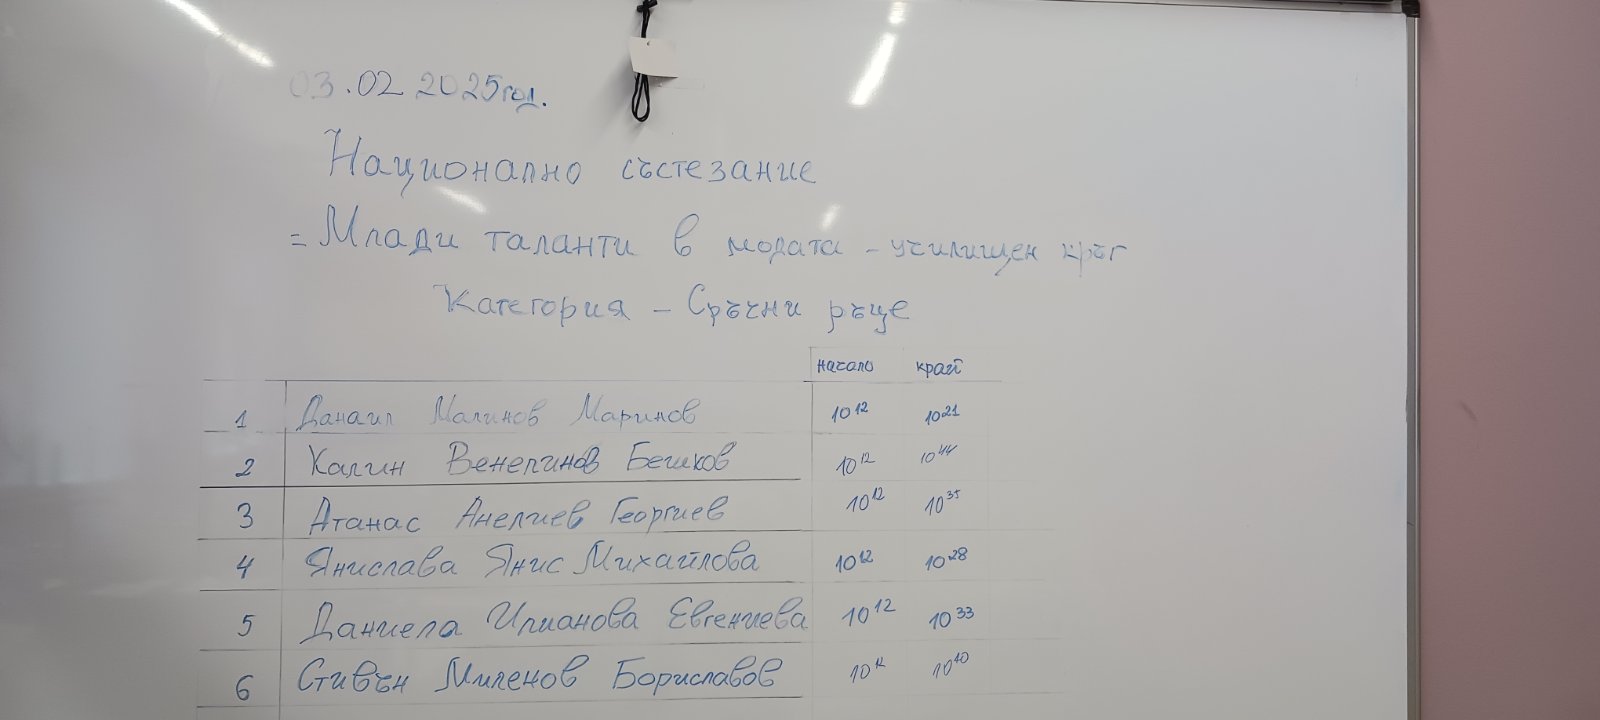 03.02 2025год.
Национално състезание
= Млади таланти в модата - училищен кръг
Категория - Сръчни ръце
начало край
1 Данаил Малинов Маринов 10¹² 10²¹
2 Калин Венелинов Бешков 10¹² 10⁴⁴
3 Атанас Анелиев Георгиев 10¹² 10³⁵
4 Янислава Янис Михайлова 10¹² 10²⁸
5 Даниела Илианова Евгениева 10¹² 10³³
6 Стивън Миленов Бориславов 10¹² 10⁴⁰